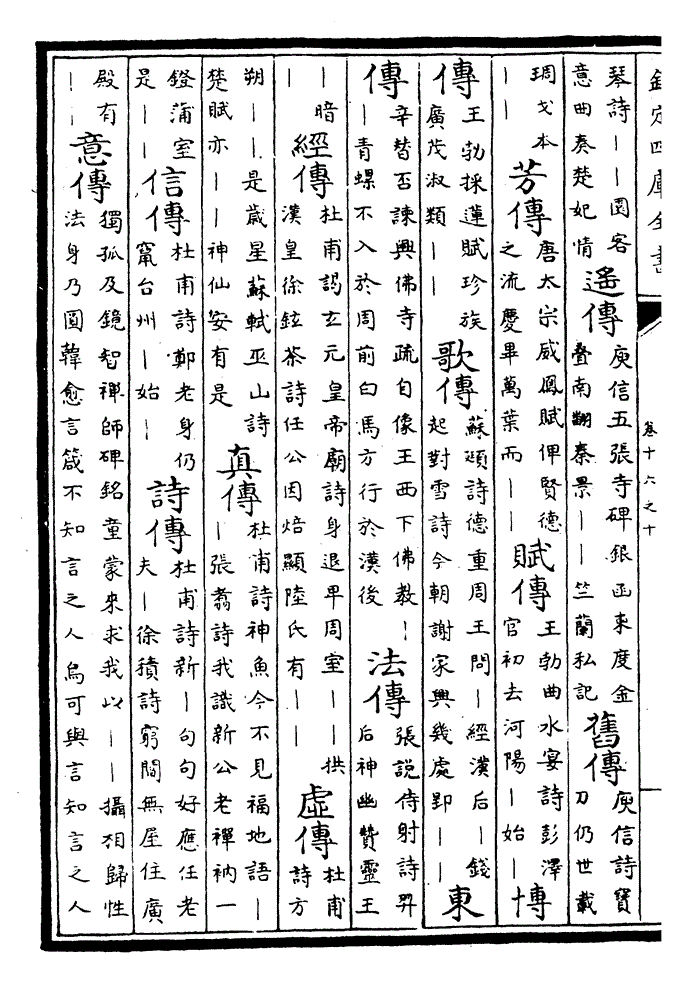 欽定四庫全書
卷十六之十
琴詩｜｜園客
意曲奏楚妃情
遙傳
庾信五張寺碑銀函東度金
疊南翻秦景｜｜竺蘭私記
舊傳
庾信詩寶
刀仍世載
琱戈本
｜｜
芳傳
唐太宗威鳳賦俾賢德
之流慶畢萬葉而｜｜
賦傳
王勃曲水宴詩彭澤
官初去河陽｜始｜
博
傳
王勃採蓮賦珍族
廣茂淑類｜｜
歌傳
蘇頲詩德重周王問｜經漢后｜錢
起對雪詩今朝謝家興幾處郢｜｜
東
傳
辛替否諫興佛寺疏自像王西下佛教｜
｜青螺不入於周前白馬方行於漢後
法傳
張說侍射詩羿
后神幽贊靈王
｜暗
｜
經傳
杜甫謁玄元皇帝廟詩身退卑周室｜｜拱
漢皇徐鉉茶詩任公因焙顯陸氏有｜｜
虛傳
杜甫
詩方
朔｜｜是歲星蘇軾巫山詩
楚賦亦｜｜神仙安有是
真傳
杜甫詩神魚今不見福地語｜
｜張翥詩我識新公老禪衲一
鐙蒲室
是｜｜
信傳
杜甫詩鄭老身仍
竄台州｜始｜
詩傳
杜甫詩新｜句句好應任老
夫｜徐積詩窮閻無屋住廣
殿有
｜｜
意傳
獨孤及鏡智禪師碑銘童蒙來求我以｜｜攝相歸性
法身乃圓韓愈言箴不知言之人烏可與言知言之人